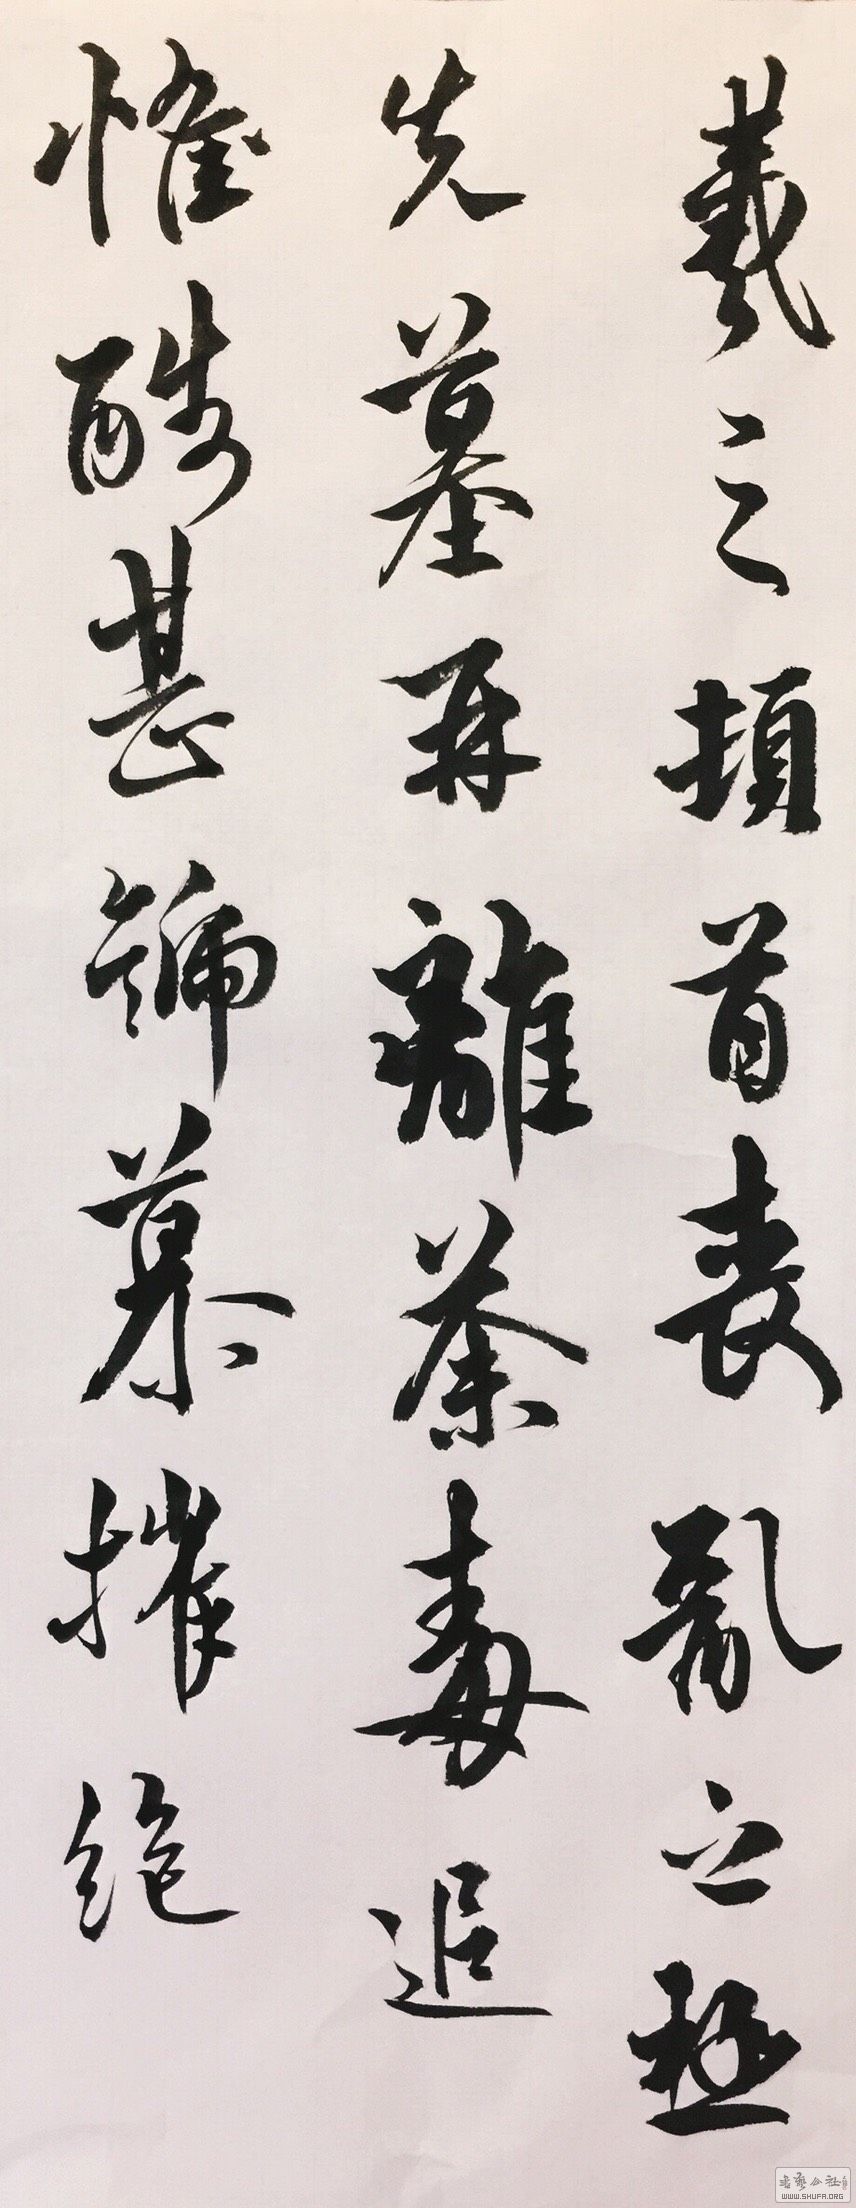 羲之頓首喪亂之極
先墓再離荼毒追
惟酷甚號慕摧絶
書藝公社
WWW.SHUFA.ORG